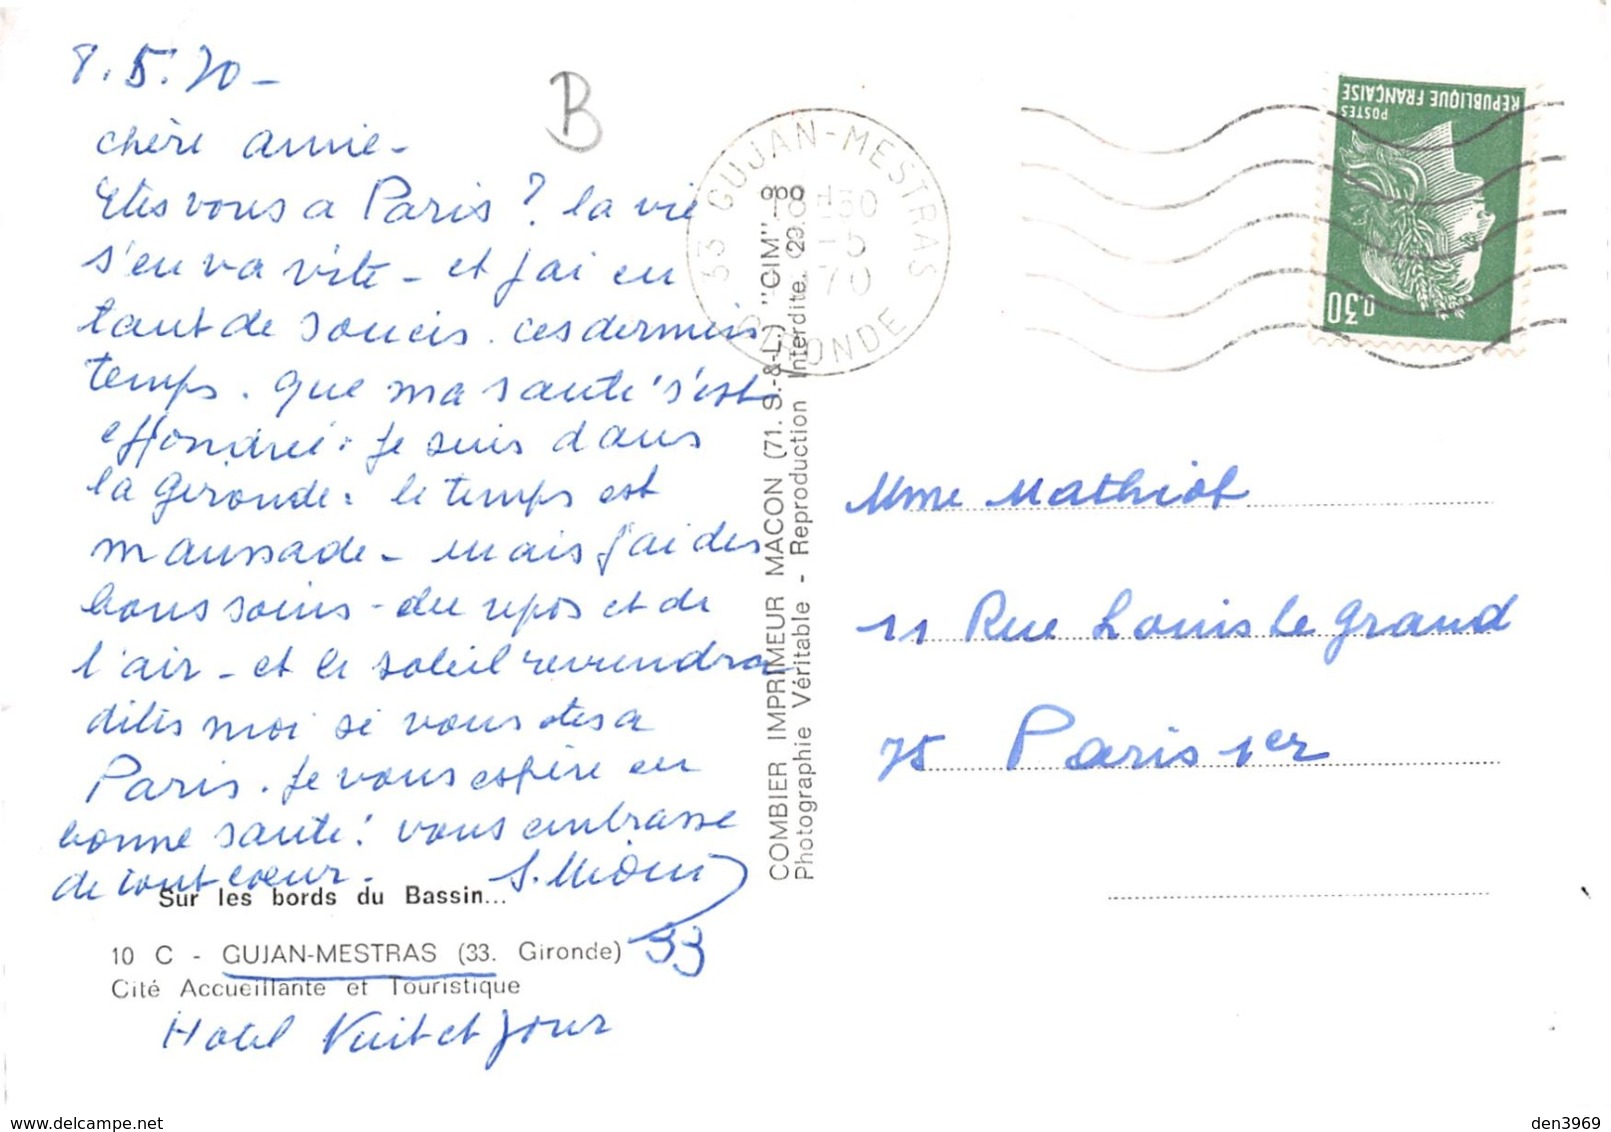 8.5.70 -
B
chère amie -
Etes vous a Paris ? la vie
s'en va vite - et j'ai eu
tant de soucis. ces derniers
temps. que ma santé s'est
effondrée. je suis dans
la gironde: le temps est
maussade - mais j'ai des
bons soins - du repos et de
l'air - et le soleil reviendra
dites moi si vous etes a
Paris. je vous espère en
bonne santé! vous embrasse
de tout coeur.
Sur les bords du Bassin...
10 C - GUJAN-MESTRAS (33. Gironde) 33
Cité Accueillante et Touristique
Hotel Nuit et jour
COMBIER IMPRIMEUR MACON (71. S.-&-L.) "CIM"
Photographie Véritable - Reproduction Interdite.
33 GUJAN-MESTRAS
GIRONDE
-5
70
POSTES
REPUBLIQUE FRANÇAISE
0,30
Mme Mathiot
11 Rue Louis le grand
75 Paris 1er
den3969